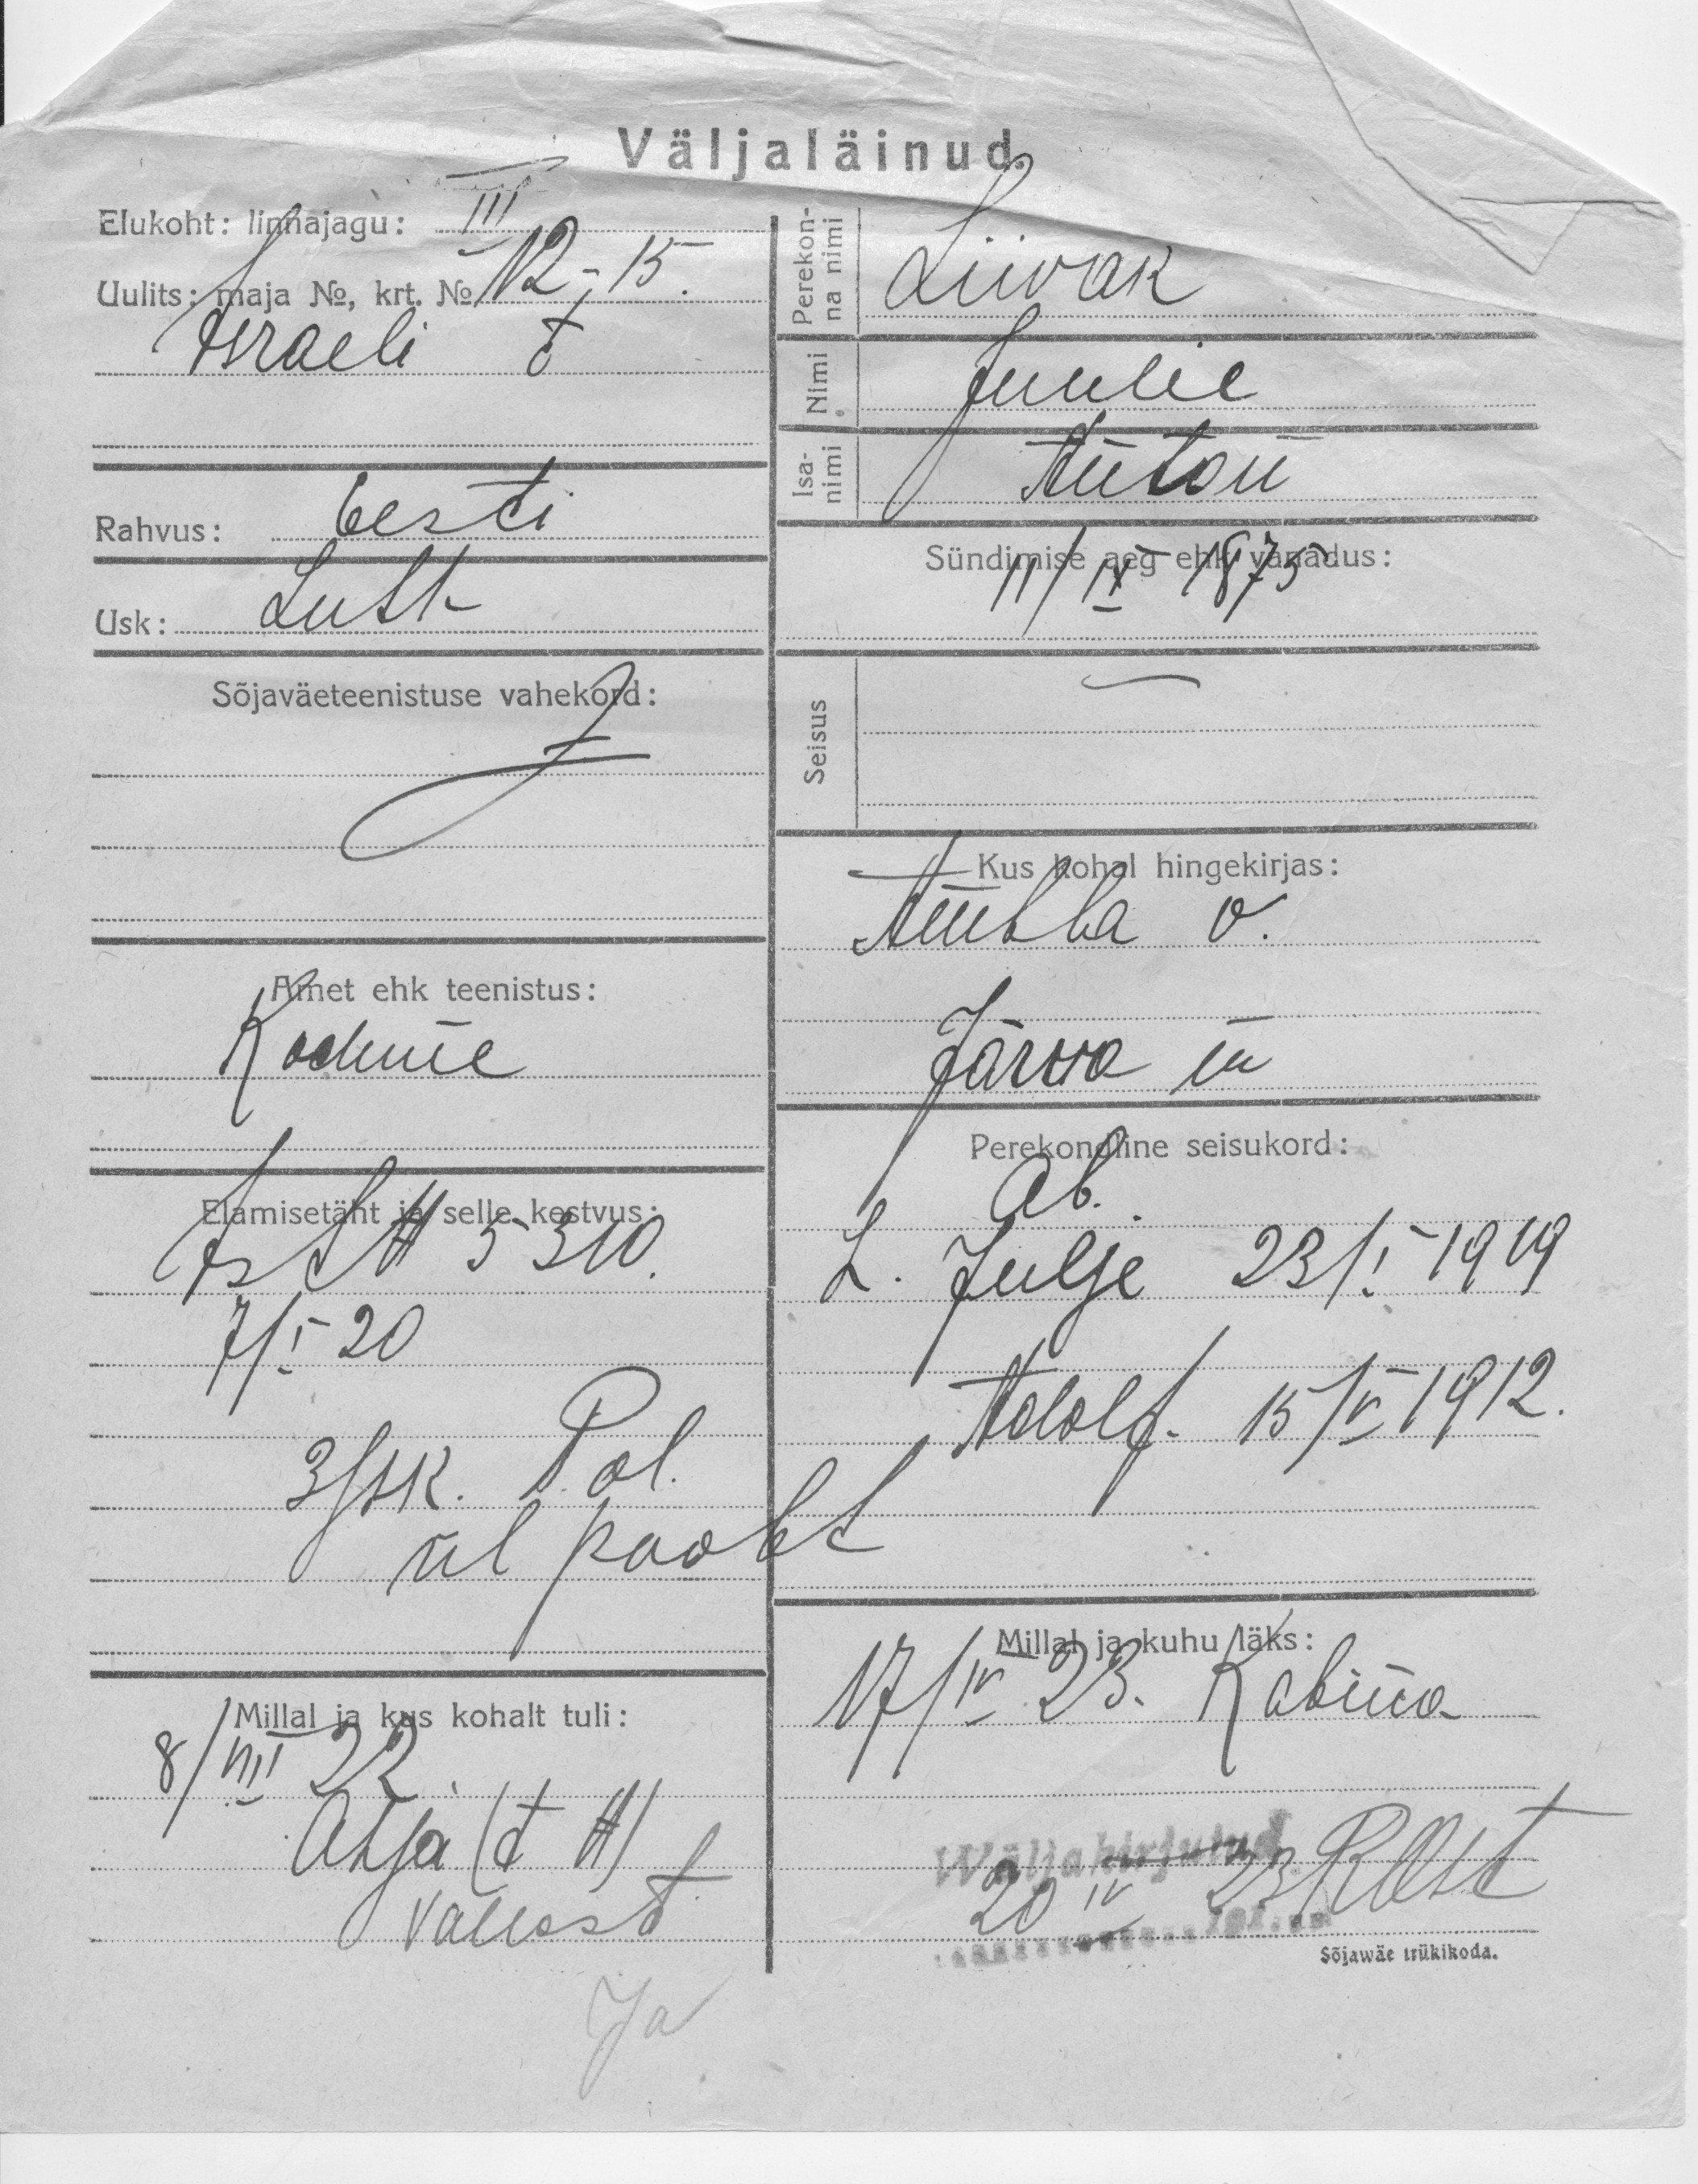 Väljaläinud.
Elukoht: linnajagu: III
Uulits: maja №, krt. № 12-15.
Israeli t
Rahvus: Eesti
Usk: Luth
Sõjaväeteenistuse vahekord:
Amet ehk teenistus:
Kodune
Elamisetäht ja selle kestvus:
№ 5310.
7/I 20
3/jsk. Pol.
ül poolt
Millal ja kus kohalt tuli:
8/VIII 22.
Ahja (t M)
vallast
Ja
Perekonna nimi
Liivak
Nimi
Juulie
Isanimi
Anton
Sündimise aeg ehk vanadus:
11/IX 1875
Seisus
Kus kohal hingekirjas:
v.
Järva m
Perekondline seisukord:
Ab.
L. Julje 23/I 1919
Adolf. 15/V 1912.
Millal ja kuhu läks:
17/IV 23. Kabina
Wäljakirjutud
20 IV 23
Sõjawäe trükikoda.